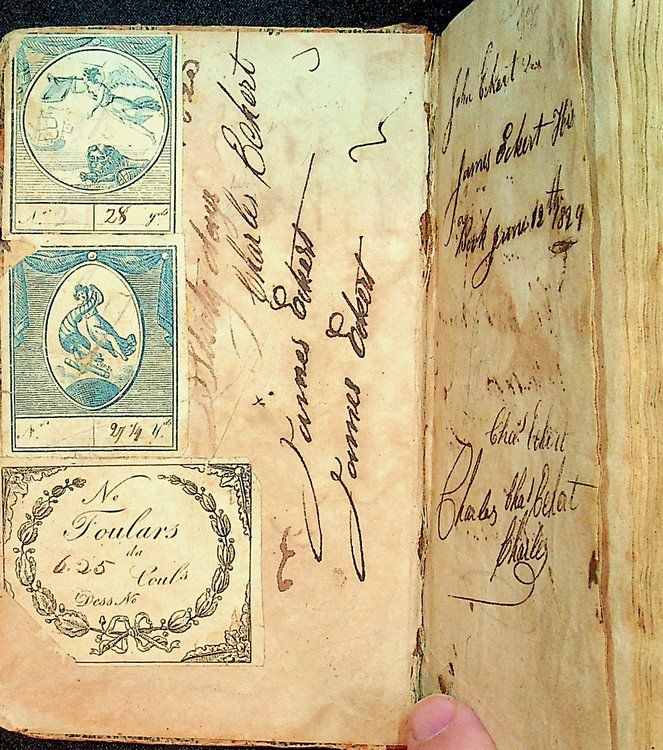 No 2 28 yds
No 27 1/4 yds
No
Foulars
du
625 Coul's
Dess. No
Charles Eckert
James Eckert
James Eckert
John Eckert
James Eckert His
Book June 12th 1829
Chas Eckert
Charles Chas Eckert
Charles